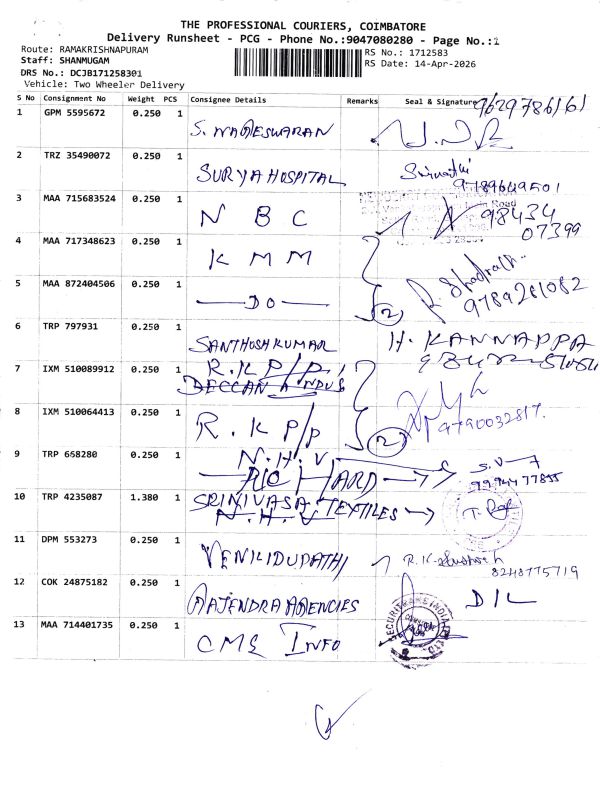 THE PROFESSIONAL COURIERS, COIMBATORE
Delivery Runsheet - PCG - Phone No.:9047080280 - Page No.:1
Route: RAMAKRISHNAPURAM
Staff: SHANMUGAM
DRS No.: DCJB171258301
Vehicle: Two Wheeler Delivery
RS No.: 1712583
RS Date: 14-Apr-2026
S No Consignment No Weight PCS Consignee Details Remarks Seal & Signature
9629786161
1 GPM 5595672 0.250 1 S. NAGESWARAN
2 TRZ 35490072 0.250 1 SURYA HOSPITAL
9789649501
3 MAA 715683524 0.250 1 N B C 98434
07399
4 MAA 717348623 0.250 1 K M M
5 MAA 872404506 0.250 1 DO 2
9789281082
6 TRP 797931 0.250 1 SANTHOSH KUMAR H. KANNAPPA
7 IXM 510089912 0.250 1 R.K P/P
DECCAN INDUS
8 IXM 510064413 0.250 1 R. K P/P 2 9790032817.
9 TRP 668280 0.250 1 N. H. V
RICHARD S.V
9994477855
10 TRP 4235087 1.380 1 SRINIVASA TEXTILES
N. H. V
11 DPM 553273 0.250 1 VENILIDUPATHI R.K
8248775719
12 COK 24875182 0.250 1 RAJENDRA AGENCIES DIL
13 MAA 714401735 0.250 1 CMS INFO